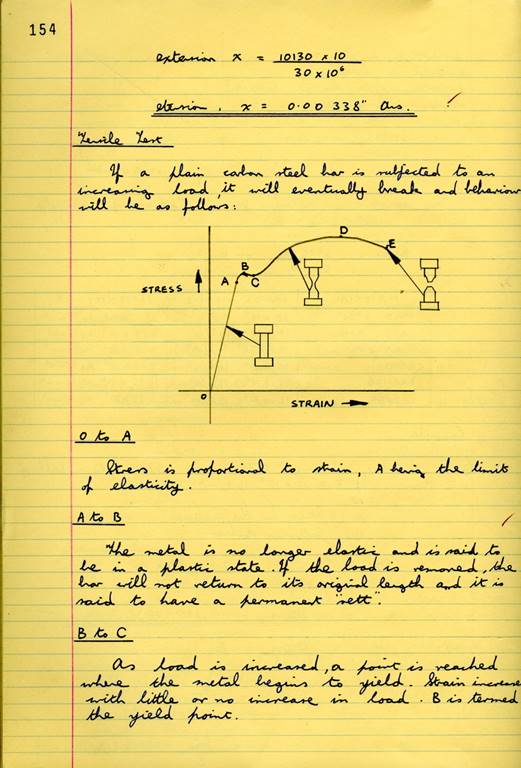 154
extension x = 10130 x 10
30 x 10⁶
etension, x = 0.00338" Ans.
Tensile Test
If a plain carbon steel bar is subjected to an
increasing load, it will eventually break and behaviour
will be as follows:
D
E
B
A C
STRESS
O
STRAIN
O to A
Stress is proportional to strain, A being the limit
of elasticity.
A to B
The metal is no longer elastic and is said to
be in a plastic state. If the load is removed, the
bar will not return to its original length and it is
said to have a permanent "sett".
B to C
As load is increased, a point is reached
where the metal begins to yield. Strain increase
with little or no increase in load. B is termed
the yield point.